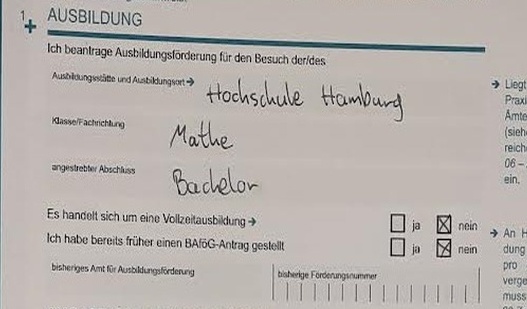 1 AUSBILDUNG
Ich beantrage Ausbildungsförderung für den Besuch der/des
Ausbildungsstätte und Ausbildungsort → Hochschule Hamburg
Klasse/Fachrichtung Mathe
angestrebter Abschluss Bachelor
Es handelt sich um eine Vollzeitausbildung → ja nein
Ich habe bereits früher einen BAföG-Antrag gestellt ja nein
bisheriges Amt für Ausbildungsförderung bisherige Förderungsnummer
→ Liegt
Praxi
Ämte
(sieh
reich
06 –
ein.
→ An H
dung
pro
verge
muss